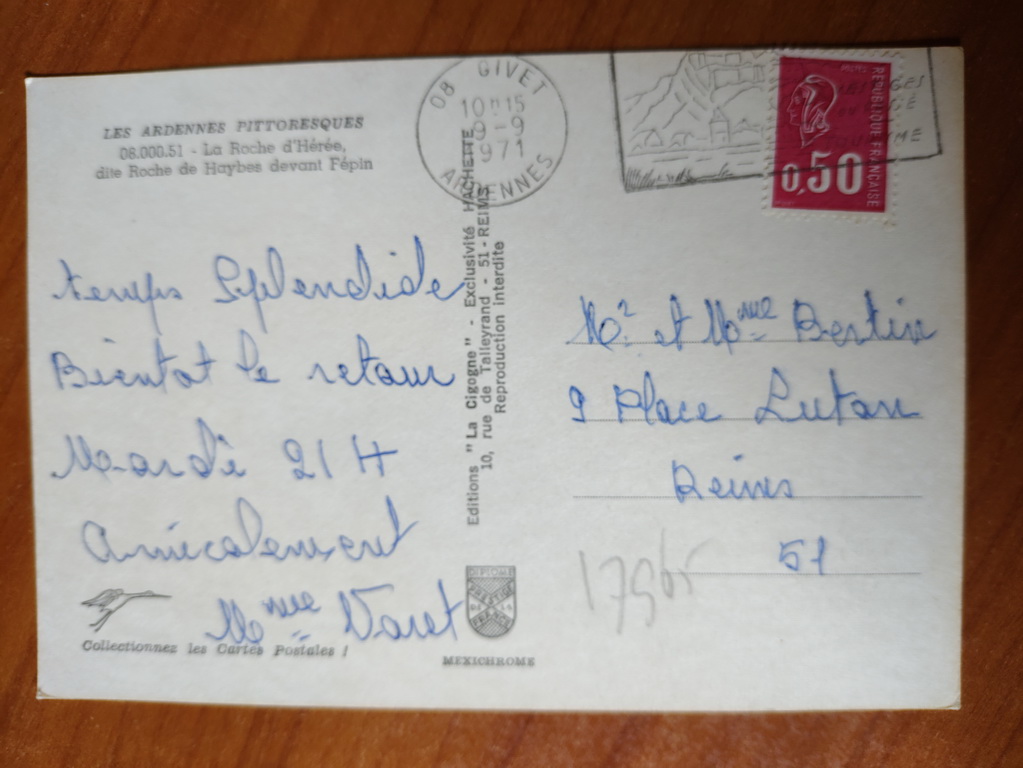 LES ARDENNES PITTORESQUES
08.000.51 - La Roche d'Hérée,
dite Roche de Haybes devant Fépin
08 GIVET
10H15
9-9
1971
ARDENNES
RÉPUBLIQUE FRANÇAISE
0,50
temps Splendide
Bientot le retour
Mardi 21 H
Amicalement
Mme Varet
Editions "La Cigogne" - Exclusivité HACHETTE
10, rue de Talleyrand - 51 - REIMS
Reproduction interdite
Mr et Mme Bertin
9 Place Luton
Reims
51
17965
DIPLOME
PRESTIGE
FRANCE
Collectionnez les Cartes Postales !
MEXICHROME